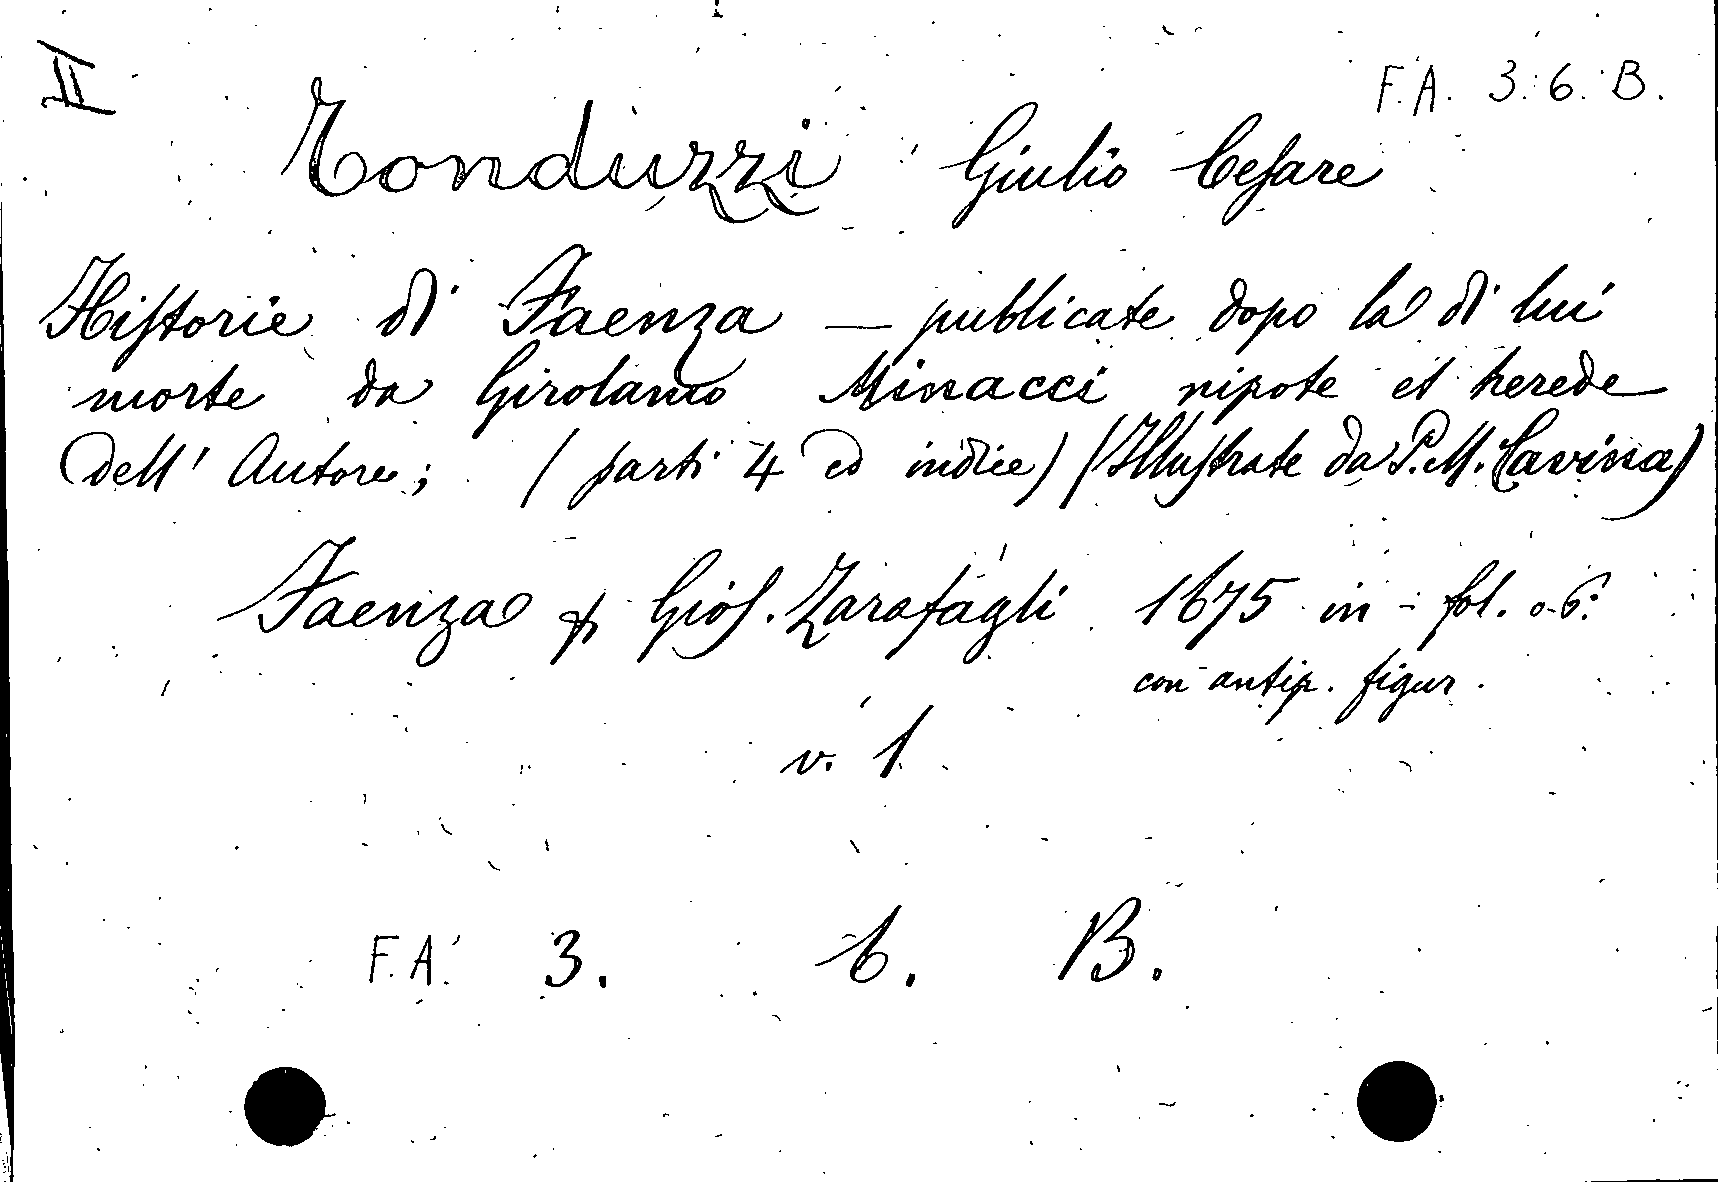 II
F.A. 3. 6. B.
Tonduzzi Giulio Cesare
Historie di Faenza — publicate dopo la di lui
morte da Girolamo Minacci nipote et herede
dell' Autore; (parti 4 ed indice) (Illustrate da P. M. Cavina)
Faenza p. Gios. Zarafagli 1675 in-fol.
con antip. figur.
v. 1
F.A. 3. 6. B.